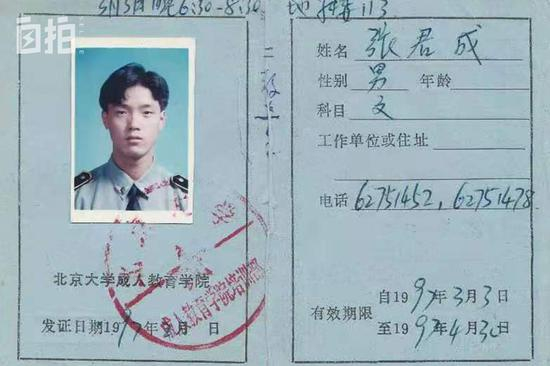 自拍
3月3日晚6:30-8:30 地 113
北京大学成人教育学院
发证日期1997年3月 日
成人教育学院培训部
姓名 张君成
性别 男 年龄
科目 文
工作单位或住址
电话 62751452,62751478
有效期限
自1997年3月3日
至1997年4月30日